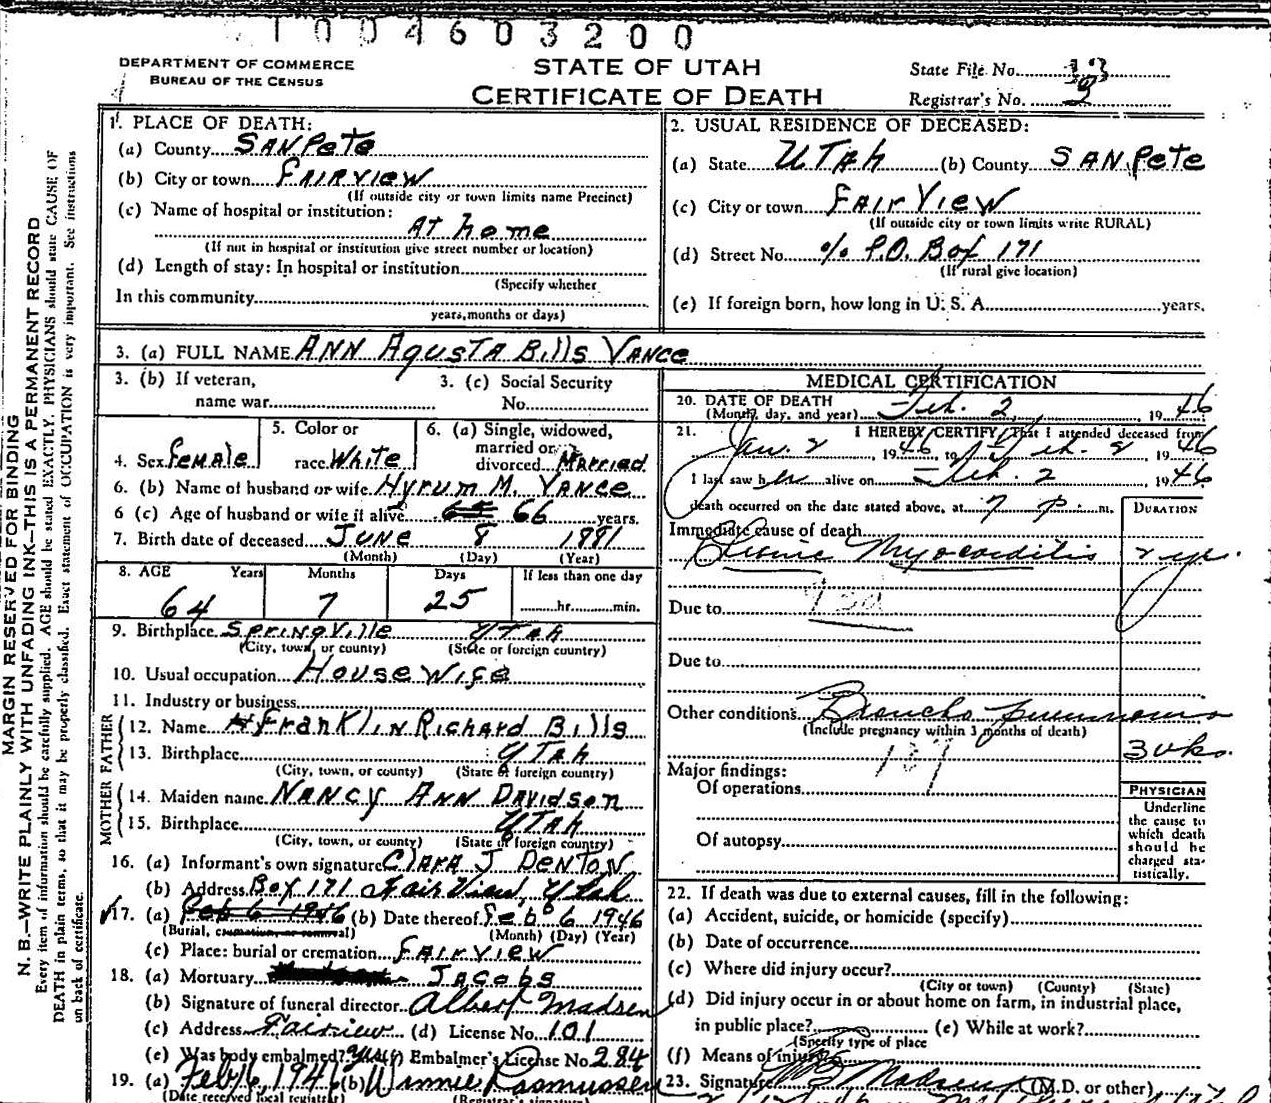 1004603200
DEPARTMENT OF COMMERCE
BUREAU OF THE CENSUS
STATE OF UTAH
CERTIFICATE OF DEATH
State File No.
Registrar's No. 3
MARGIN RESERVED FOR BINDING
N. B.—WRITE PLAINLY WITH UNFADING INK—THIS IS A PERMANENT RECORD
Every item of information should be carefully supplied. AGE should be stated EXACTLY. PHYSICIANS should state CAUSE OF
DEATH in plain terms, so that it may be properly classified. Exact statement of OCCUPATION is very important. See instructions
on back of certificate.
1. PLACE OF DEATH:
(a) County SANPETE
(b) City or town FAIRVIEW
(If outside city or town limits name Precinct)
(c) Name of hospital or institution:
AT home
(If not in hospital or institution give street number or location)
(d) Length of stay: In hospital or institution
(Specify whether
In this community
years, months or days)
2. USUAL RESIDENCE OF DECEASED:
(a) State UTAH (b) County SANPETE
(c) City or town FAIR VIEW
(If outside city or town limits write RURAL)
(d) Street No. % P.O. Box 171
(If rural give location)
(e) If foreign born, how long in U. S. A. years.
3. (a) FULL NAME ANN AGUSTA Bills VANCE
3. (b) If veteran,
name war
3. (c) Social Security
No.
4. Sex Female
5. Color or
race White
6. (a) Single, widowed,
married or
divorced MARRied
6. (b) Name of husband or wife Hyrum M. VANCE
6 (c) Age of husband or wife if alive 66 years.
7. Birth date of deceased JUNE 8 1881
(Month) (Day) (Year)
8. AGE Years Months Days If less than one day
64 7 25 hr. min.
9. Birthplace SPRINGVille UTAH
(City, town, or county) (State or foreign country)
10. Usual occupation House Wife
11. Industry or business
FATHER
12. Name Franklin Richard Bills
13. Birthplace UTAH
(City, town, or county) (State or foreign country)
MOTHER
14. Maiden name NANCY ANN DAVIDSON
15. Birthplace UTAH
(City, town, or county) (State or foreign country)
16. (a) Informant's own signature CLARA J DENTON
(b) Address Box 171 Fair View, Utah
17. (a) Feb 6 1946 (b) Date thereof Feb 6 1946
(Burial, cremation, or removal) (Month) (Day) (Year)
(c) Place: burial or cremation FAIRVIEW
18. (a) Mortuary JACOBS
(b) Signature of funeral director Albert Madsen
(c) Address Fairview (d) License No. 101
(e) Was body embalmed? yes (f) Embalmer's License No 284
19. (a) Feb 6, 1946 (b) Winnie Rasmussen
(Date received local registrar) (Registrar's signature)
MEDICAL CERTIFICATION
20. DATE OF DEATH
(Month, day, and year) Feb. 2, 1946
21. I HEREBY CERTIFY, That I attended deceased from
Jan. 2, 1946, to Feb. 2 1946
I last saw her alive on Feb. 2 1946
death occurred on the date stated above, at 7 P. m.
DURATION
Immediate cause of death
Chronic Myocarditis 2 yr.
Due to
Due to
Other conditions Broncho pneumonia
(Include pregnancy within 3 months of death)
3 wks.
107
Major findings:
Of operations
Of autopsy
PHYSICIAN
Underline
the cause to
which death
should be
charged sta-
tistically.
22. If death was due to external causes, fill in the following:
(a) Accident, suicide, or homicide (specify)
(b) Date of occurrence
(c) Where did injury occur?
(City or town) (County) (State)
(d) Did injury occur in or about home on farm, in industrial place,
in public place? (e) While at work?
(Specify type of place
(f) Means of injury
23. Signature Madsen (M.D. or other)